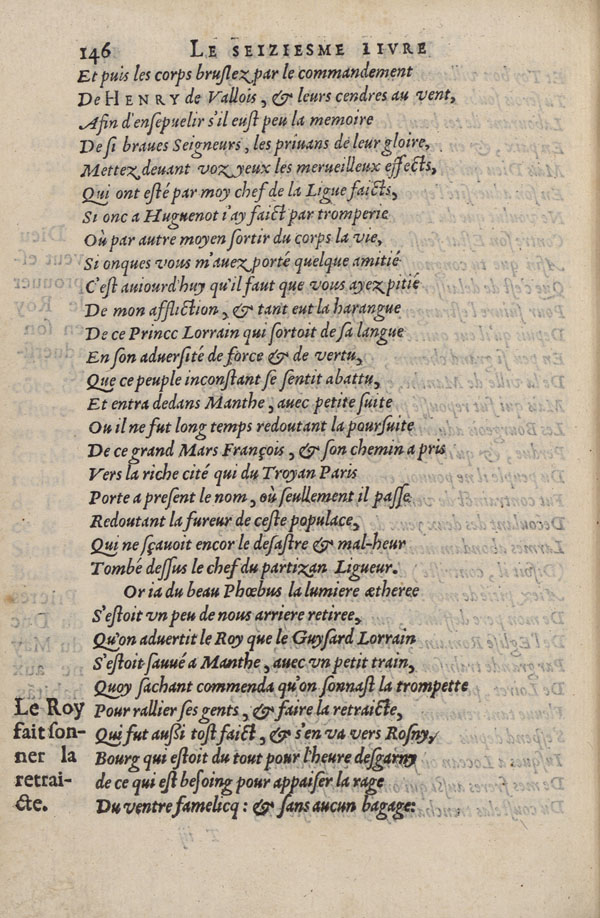 146 LE SEIZIESME LIVRE
Et puis les corps bruſlez par le commandement
De HENRY de Vallois, & leurs cendres au vent,
Afin d'enſepuelir s'il euſt peu la memoire
De ſi braues Seigneurs, les priuans de leur gloire,
Mettez deuant voz yeux les merueilleux effects,
Qui ont eſté par moy chef de la Ligue faicts,
Si onc a Huguenot i'ay faict par tromperie
Où par autre moyen ſortir du corps la vie,
Si onques vous m'auez porté quelque amitié
C'eſt auiourd'huy qu'il faut que vous ayez pitié
De mon affliction, & tant eut la harangue
De ce Princc Lorrain qui ſortoit de ſa langue
En ſon aduerſité de force & de vertu,
Que ce peuple inconſtant ſe ſentit abattu,
Et entra dedans Manthe, auec petite ſuite
Ou il ne fut long temps redoutant la pourſuite
De ce grand Mars François, & ſon chemin a pris
Vers la riche cité qui du Troyan Paris
Porte a preſent le nom, où ſeullement il paſſe
Redoutant la fureur de ceſte populace,
Qui ne ſçauoit encor le deſaſtre & mal-heur
Tombé deſſus le chef du partizan Ligueur.
Or ia du beau Phœbus la lumiere ætheree
S'eſtoit vn peu de nous arriere retiree,
Qu'on aduertit le Roy que le Guyſard Lorrain
S'eſtoit ſauué a Manthe, auec vn petit train,
Quoy sachant commenda qu'on ſonnaſt la trompette
Le Roy fait ſon-
ner la
retrai-
cte.
Pour rallier ſes gents, & faire la retraicte,
Qui fut auſſi toſt faict, & s'en va vers Roſny,
Bourg qui eſtoit du tout pour l'heure deſgarny
de ce qui eſt beſoing pour appaiſer la rage
Du ventre famelicq: & ſans aucun bagage: